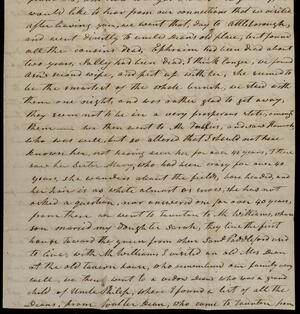 would like to hear from our connections that we visited
after leaving you, we went that day to Attleborough,
and went directly to uncle Deans old place, but found
all the cousins dead, Ephraim had been dead about
two years, Salley had been dead, I think longer, we found
Asa's second wife, and put up with her, she seemed to
be the smartest of the whole bunch, we staid with
them one night, and was rather glad to get away,
they seem not to be in a very prosperous state, among
them we then went to Mr and saw Hannah
who was well, but so altered that I should not have
known her, not seeing her for over 40 years, I then
saw her sister Mary, who had been crazy for over 40
years, she wanders about the fields, bare headed, and
her hair is as white almost as snow, she has not
asked a question, nor answered one for over 40 years,
from there we went to Taunton to Mr Williams, whose
son married my daughter Sarah, they live the first
house toward the green from where David Padelford used
to live, with Mr Williams I visited an old Mrs Dean
at the old deacon house, who remembered our family very
well, we then went to a widow Deans who was a grand
child of Uncle Philip, where I found a list of all the
Deans, from Walter Dean, who came to Taunton from